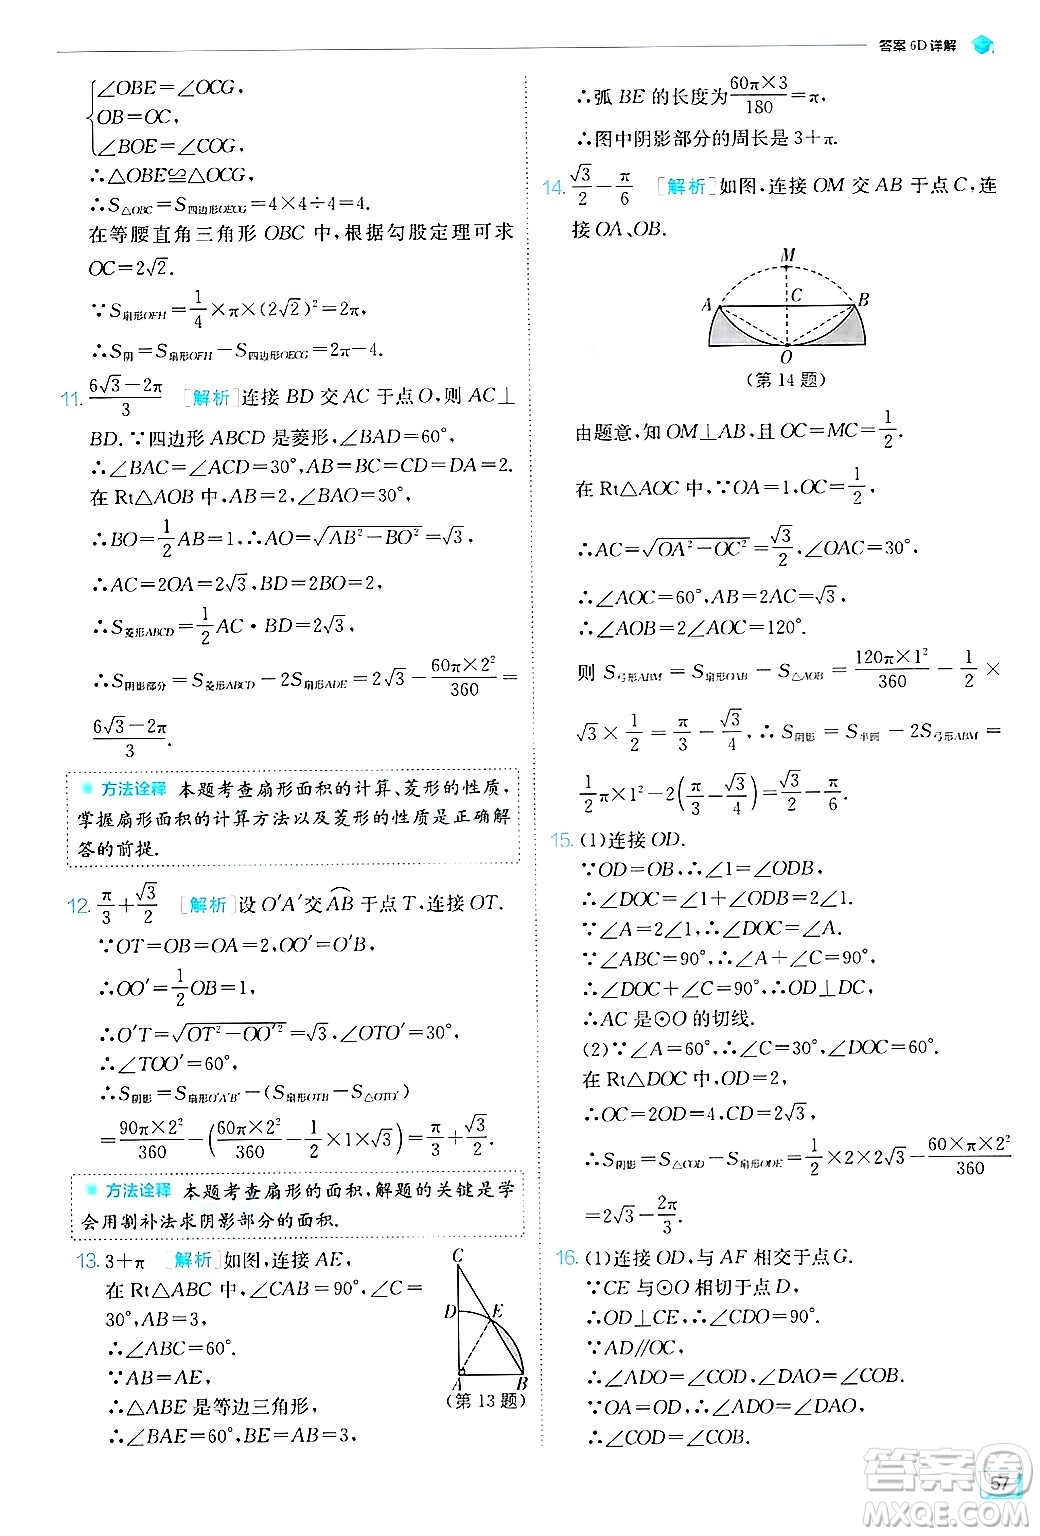 答案 6D 详解
∠OBE=∠OCG,
OB=OC,
∠BOE=∠COG,
∴△OBE≌△OCG,
∴S△OBC=S四边形OECG=4×4÷4=4.
在等腰直角三角形 OBC 中,根据勾股定理可求
OC=2√2.
∵S扇形OFH=1/4×π×(2√2)²=2π,
∴S阴=S扇形OFH-S四边形OECG=2π-4.
11. (6√3-2π)/3 [解析]连接 BD 交 AC 于点 O,则 AC⊥
BD.∵四边形 ABCD 是菱形,∠BAD=60°,
∴∠BAC=∠ACD=30°,AB=BC=CD=DA=2.
在 Rt△AOB 中,AB=2,∠BAO=30°,
∴BO=1/2AB=1,∴AO=√(AB²-BO²)=√3,
∴AC=2OA=2√3,BD=2BO=2,
∴S菱形ABCD=1/2AC·BD=2√3,
∴S阴影部分=S菱形ABCD-2S扇形ADE=2√3-(60π×2²)/360=
(6√3-2π)/3.
方法诠释 本题考查扇形面积的计算、菱形的性质,
掌握扇形面积的计算方法以及菱形的性质是正确解
答的前提.
12. π/3+√3/2 [解析]设 O′A′交AB⌒于点 T,连接 OT.
∵OT=OB=OA=2,OO′=O′B,
∴OO′=1/2OB=1,
∴O′T=√(OT²-OO′²)=√3,∠OTO′=30°,
∴∠TOO′=60°,
∴S阴影=S扇形O′A′B′-(S扇形OTB-S△OTO′)
=(90π×2²)/360-((60π×2²)/360-1/2×1×√3)=π/3+√3/2.
方法诠释 本题考查扇形的面积,解题的关键是学
会用割补法求阴影部分的面积.
13. 3+π [解析]如图,连接 AE,
在 Rt△ABC 中,∠CAB=90°,∠C=
30°,AB=3,
∴∠ABC=60°.
∵AB=AE,
∴△ABE 是等边三角形,
∴∠BAE=60°,BE=AB=3,
C
D
E
A
B
(第 13 题)
∴弧 BE 的长度为(60π×3)/180=π,
∴图中阴影部分的周长是 3+π.
14. √3/2-π/6 [解析]如图,连接 OM 交 AB 于点 C,连
接 OA、OB.
M
A
C
B
O
(第 14 题)
由题意,知 OM⊥AB,且 OC=MC=1/2.
在 Rt△AOC 中,∵OA=1,OC=1/2,
∴AC=√(OA²-OC²)=√3/2,∠OAC=30°,
∴∠AOC=60°,AB=2AC=√3,
∴∠AOB=2∠AOC=120°.
则 S弓形ABM=S扇形OAB-S△AOB=(120π×1²)/360-1/2×
√3×1/2=π/3-√3/4,∴S阴影=S半圆-2S弓形ABM=
1/2π×1²-2(π/3-√3/4)=√3/2-π/6.
15. (1)连接 OD.
∵OD=OB,∴∠1=∠ODB,
∴∠DOC=∠1+∠ODB=2∠1.
∵∠A=2∠1,∴∠DOC=∠A.
∵∠ABC=90°,∴∠A+∠C=90°,
∴∠DOC+∠C=90°,∴OD⊥DC,
∴AC 是⊙O 的切线.
(2)∵∠A=60°,∴∠C=30°,∠DOC=60°.
在 Rt△DOC 中,OD=2,
∴OC=2OD=4,CD=2√3,
∴S阴影=S△COD-S扇形ODE=1/2×2×2√3-(60×π×2²)/360
=2√3-2π/3.
16. (1)连接 OD,与 AF 相交于点 G.
∵CE 与⊙O 相切于点 D,
∴OD⊥CE,∴∠CDO=90°.
∵AD//OC,
∴∠ADO=∠COD,∠DAO=∠COB.
∵OA=OD,∴∠ADO=∠DAO,
∴∠COD=∠COB.
57
答案圈
MXQE.COM